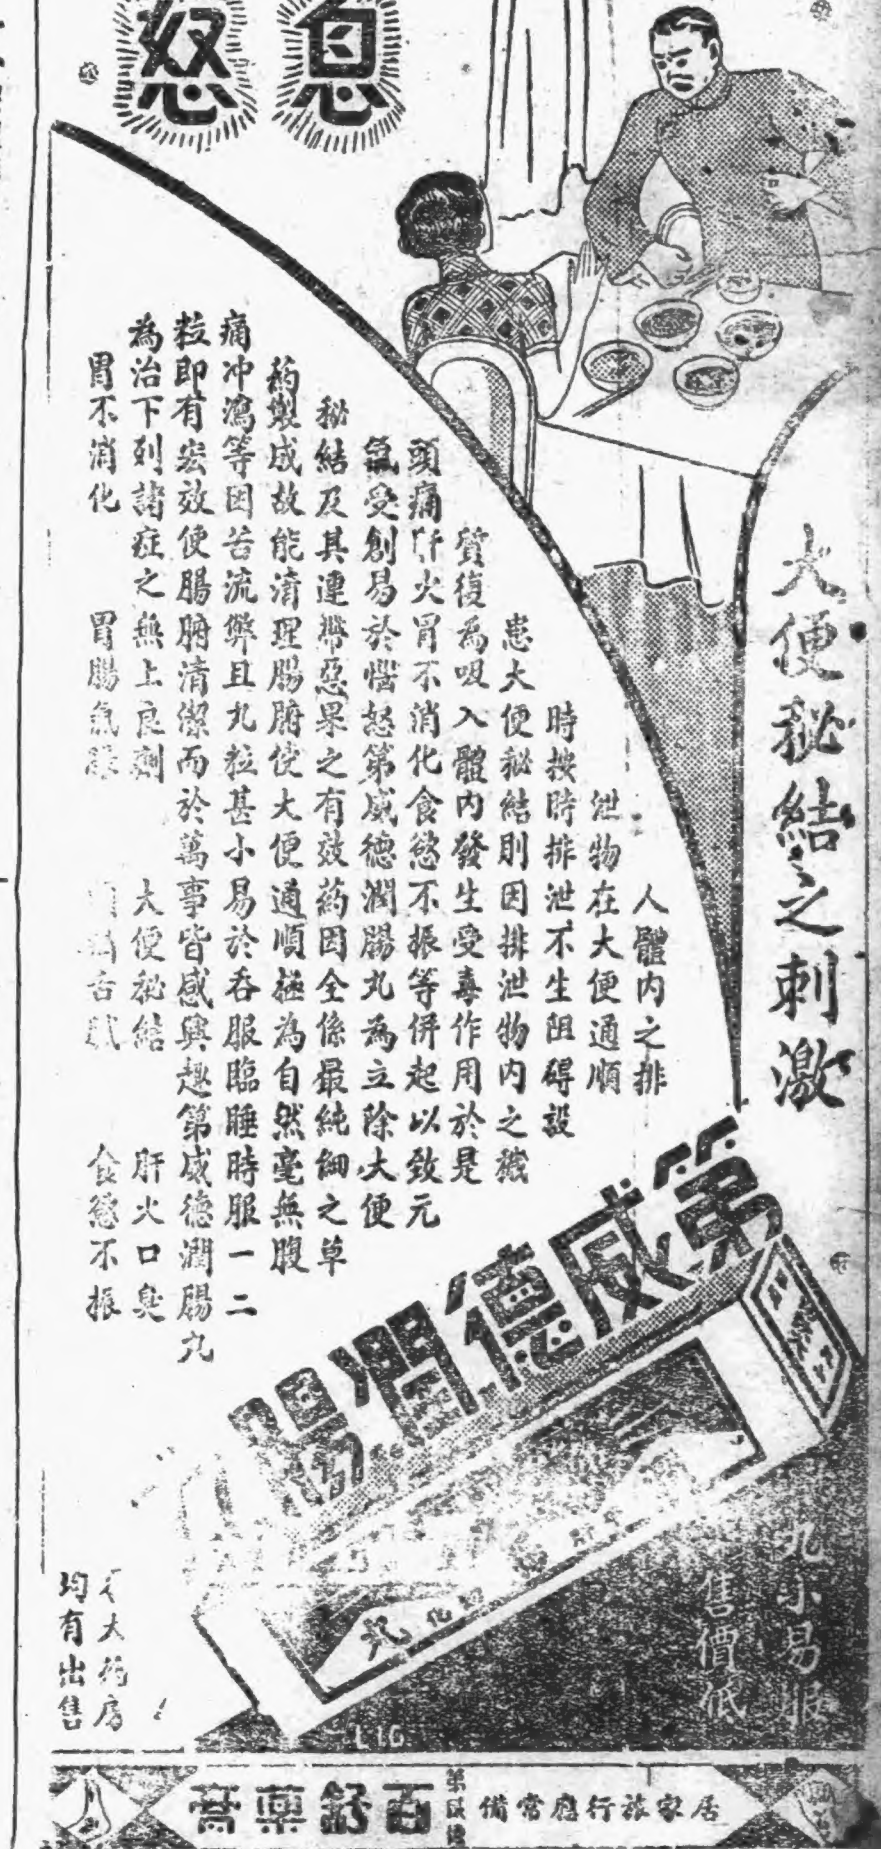 息怒
大便秘結之刺激
人體內之排
泄物在大便通順
時按時排泄不生阻碍設
患大便秘結則因排泄物內之穢
質復為吸入體內發生受毒作用於是
頭痛肝火胃不消化食慾不振等併起以致元
氣受創易於惱怒第威德潤腸丸為立除大便
秘結及其連帶惡果之有效药因全係最純細之草
药製成故能清理腸腑使大便通順極為自然毫無腹
痛冲瀉等因苦流弊且丸粒甚小易於吞服臨睡時服一二
粒即有宏效便腸腑清潔而於萬事皆感興趣第威德潤腸丸
為治下列諸症之無上良劑 大便秘結 肝火口臭
胃不消化 胃腸氣 食慾不振
第威德潤腸
丸
丸小易服
售價低
大药房
均有出售
LIG
居家旅行應常備
第威德
百舒藥膏